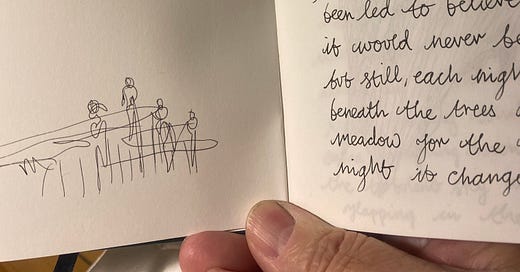 been led to believe
it would never be
but still, each nigh
beneath the trees
meadow for the
night it change